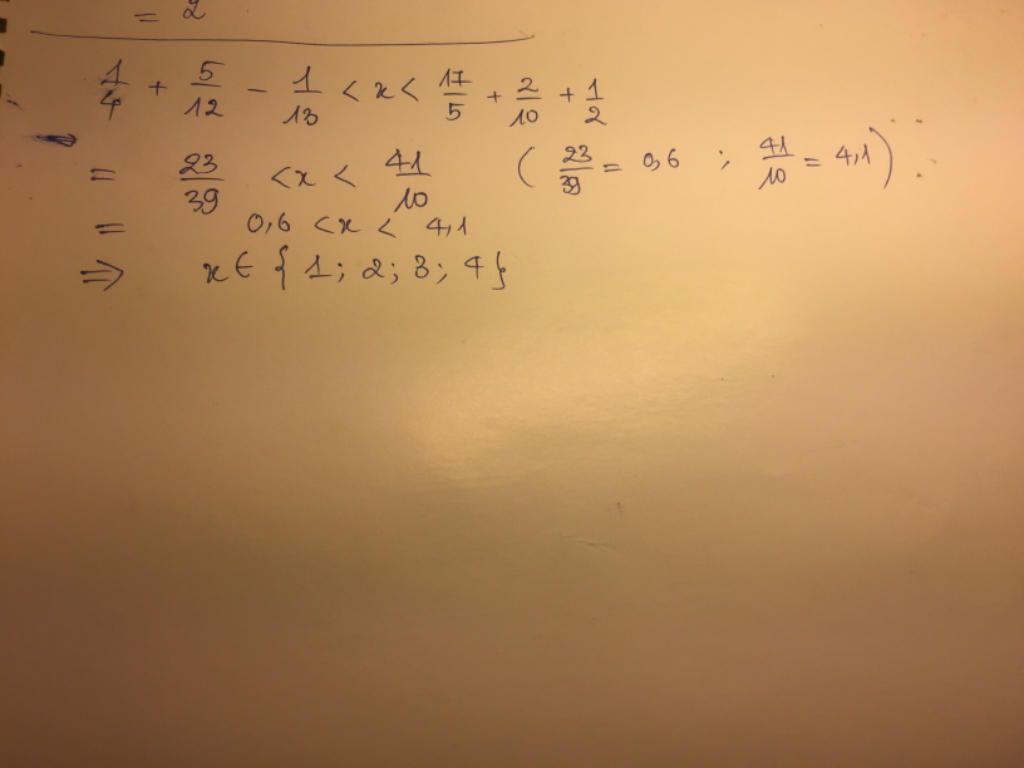 = 2
1/4 + 5/12 - 1/13 < x < 17/5 + 2/10 + 1/2
= 23/39 < x < 41/10 ( 23/39 = 0,6 ; 41/10 = 4,1 )
= 0,6 < x < 4,1
⇒ x ∈ { 1 ; 2 ; 3 ; 4 }